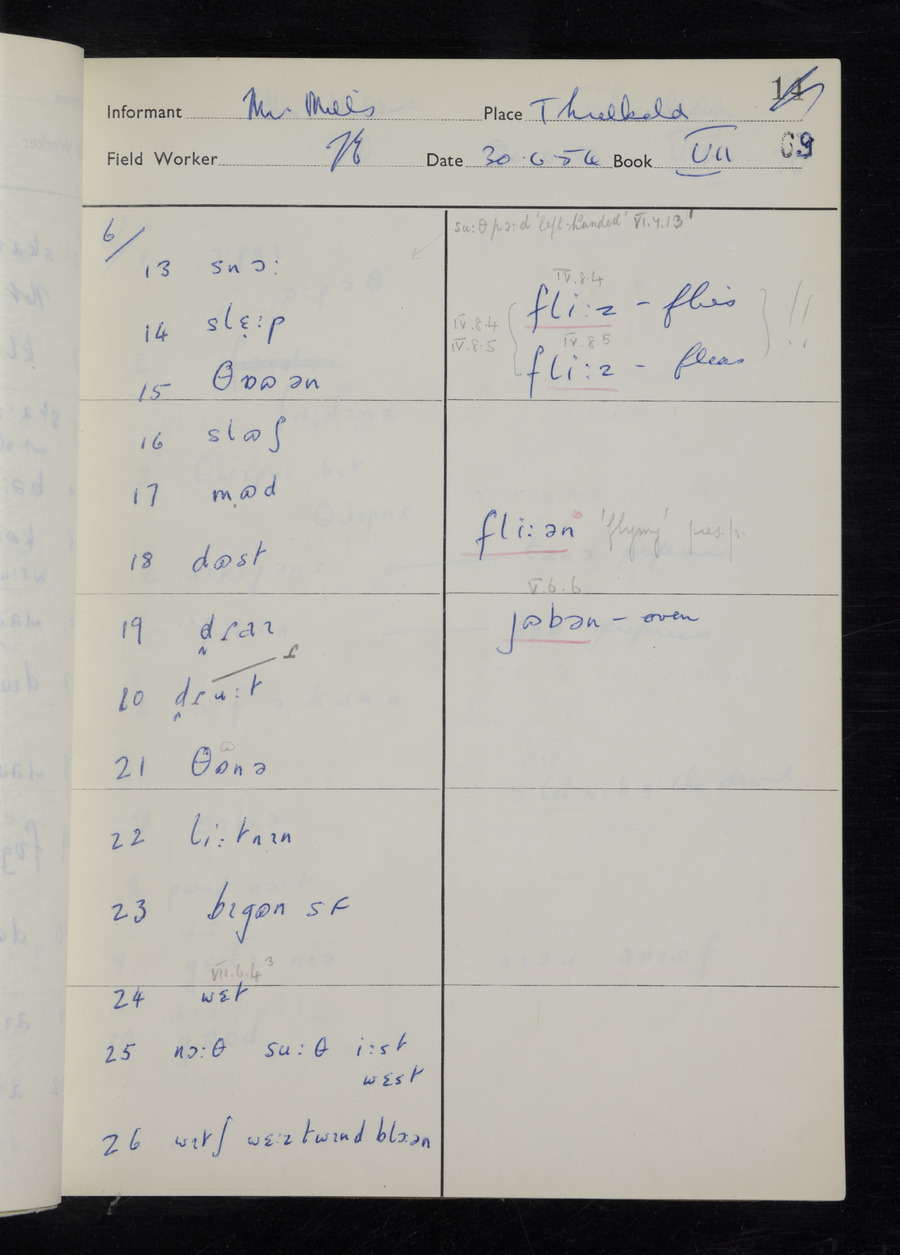 14
Informant Mr. Mills Place Threlkeld
Field Worker Date 30.6.56 Book VII 69
6/
13 snɔː
14 slɛ̣ːp
15 θɒωən
16 slωʃ
17 mωd
18 dωst
19 d̪ɾaɪ
20 d̪ɾuːt ɾ
21 θωnə
22 liːtnɪn
23 bɪgωn sɛ
VII.6.4³
24 wɛt
25 nɔːθ suːθ iːst
wɛst
26 wɪtʃ wɛːz twɪnd blɔːən
suːθ pɔːd 'left-handed' VI.7.13¹
IV.8.4
fliːz - flies
IV.8.4
IV.8.5
IV.8.5
fliːz - fleas
!!
fliːən 'flying' pres.p.
V.6.6
jωbən - oven